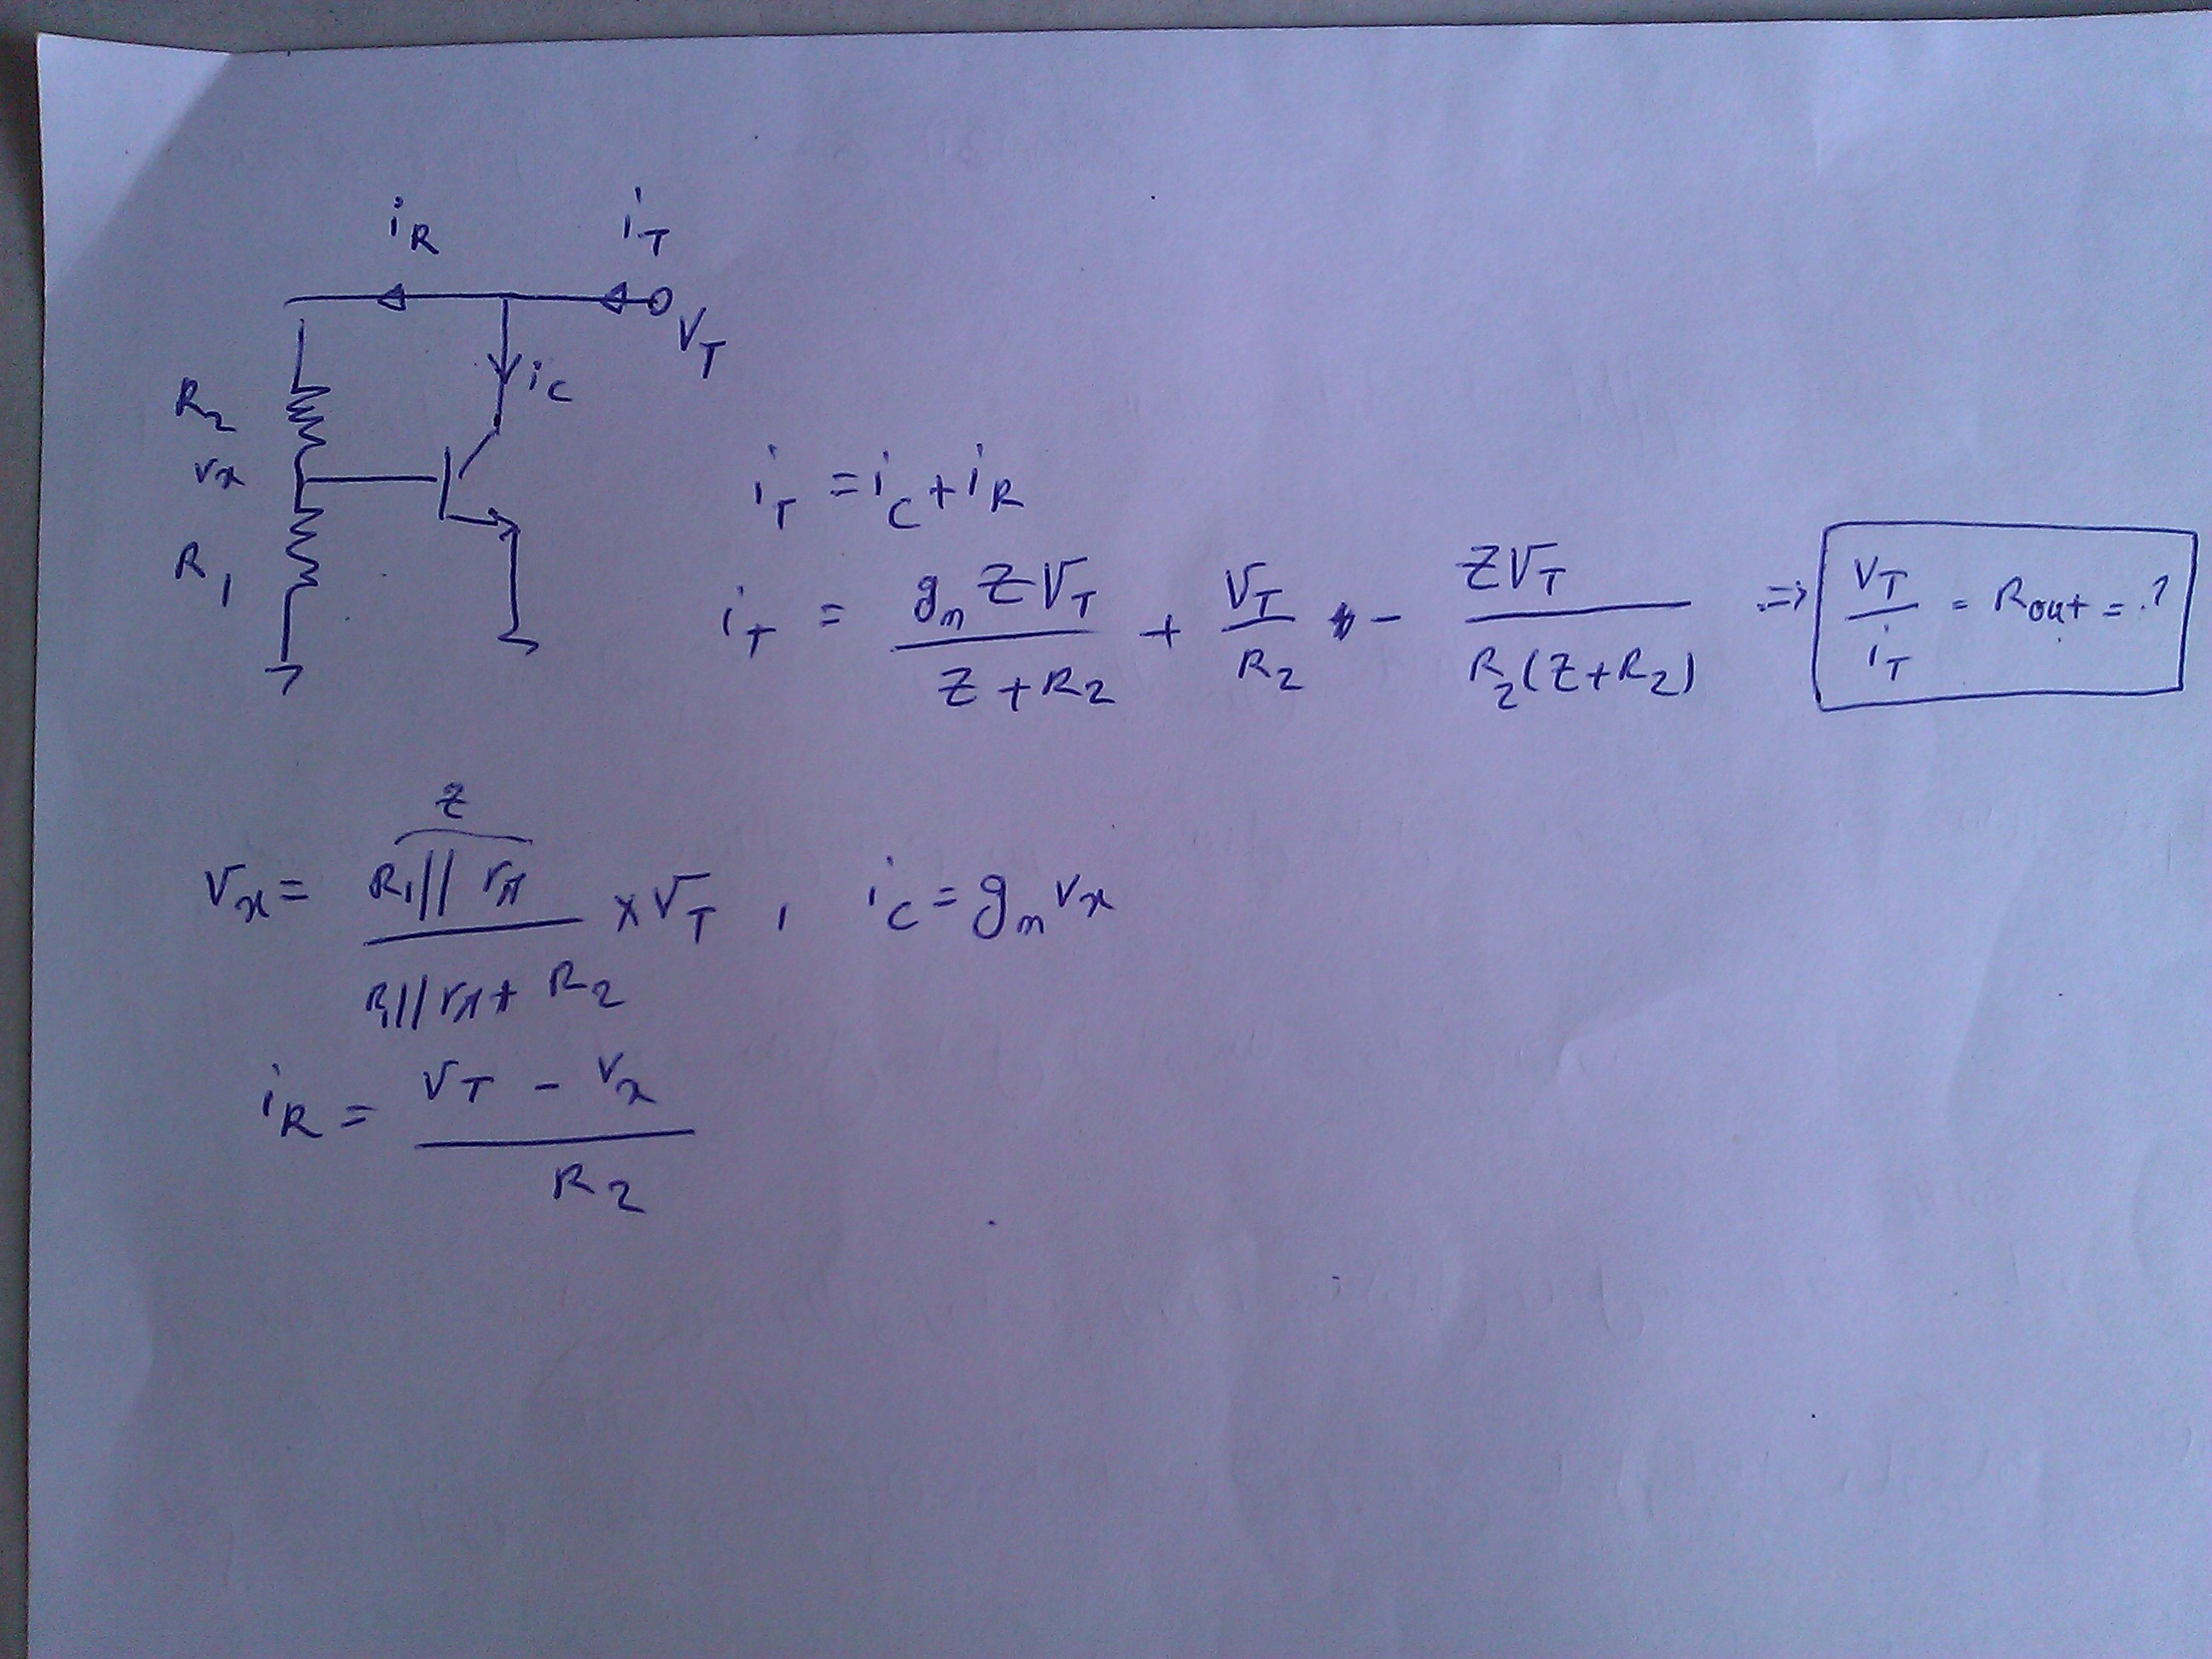 i_R i_T
V_T
i_C
R_2
v_x
R_1
i_T = i_C + i_R
i_T = \frac{g_m Z V_T}{Z + R_2} + \frac{V_T}{R_2} - \frac{Z V_T}{R_2(Z + R_2)} ⇒ \frac{V_T}{i_T} = R_out = ?
Z
V_x = \frac{R_1 || r_π}{R_1 || r_π + R_2} × V_T , i_C = g_m v_x
i_R = \frac{V_T - V_x}{R_2}